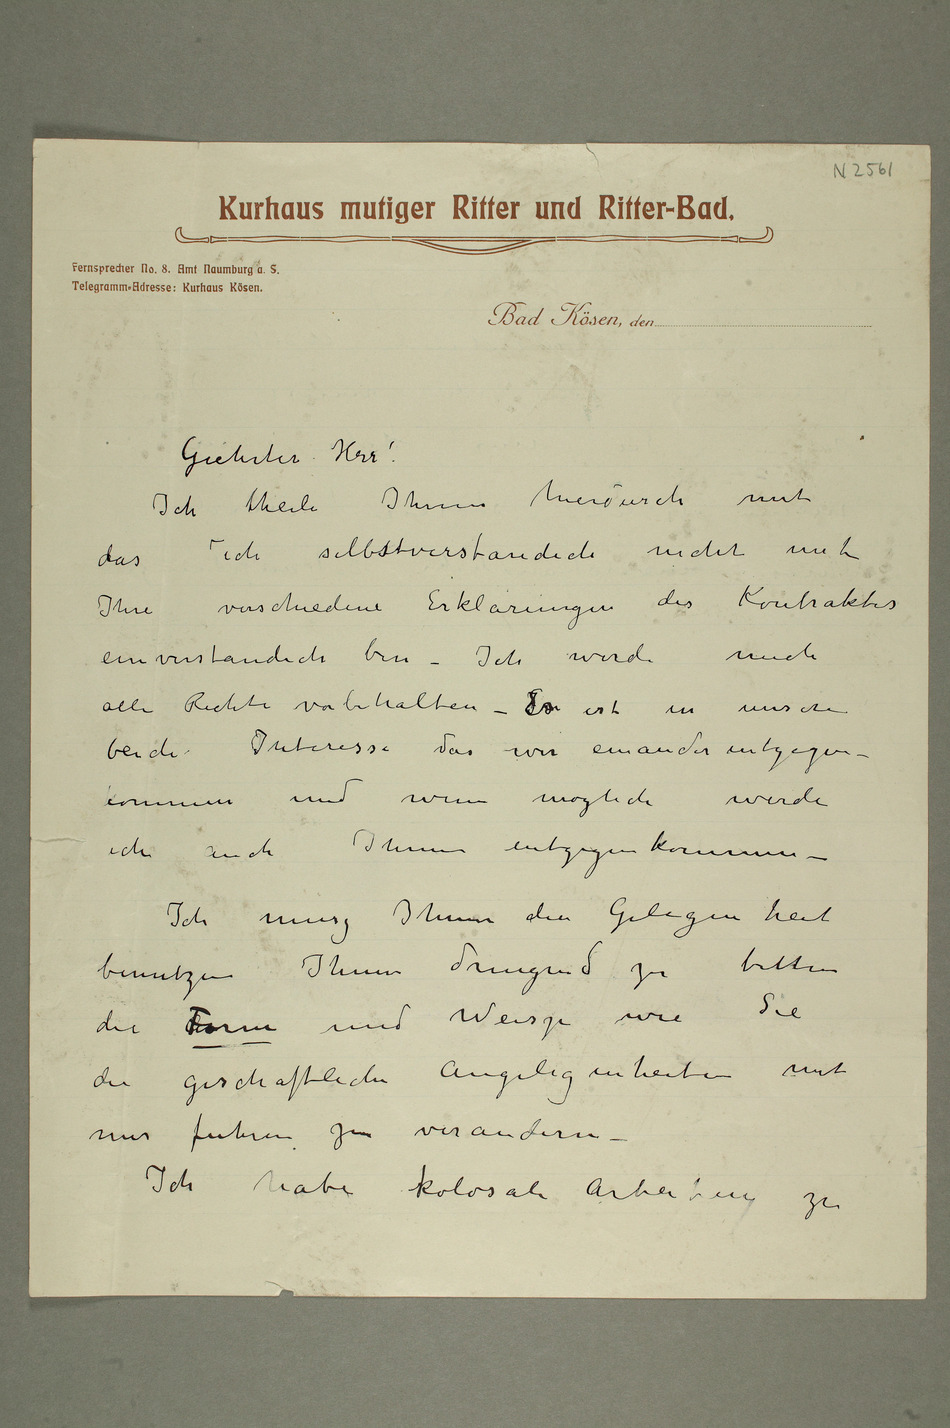 N 2561
Kurhaus mutiger Ritter und Ritter-Bad.
Fernsprecher No. 8. Amt Naumburg a. S.
Telegramm-Adresse: Kurhaus Kösen.
Bad Kösen, den
Geehrter Herr!
Ich theile Ihnen hierdurch mit
das ich selbstverstandich nicht mit
Ihre verschiedene Erklärungen des Kontraktes
einverstandich bin – Ich werde mich
alle Rechte vorbehalten – Es ist in unsere
beide Interesse das wir einander entgegen–
kommen und wenn moglich werde
ich auch Ihnen entgegenkommen –
Ich musz Ihnen die Gelegenheit
benutzen Ihnen dringend zu bitten
die Form und Weisze wie Sie
die geschaftliche Angelegenheiten mit
mir fuhren zu verandern –
Ich habe kolosale Arbeiten zu